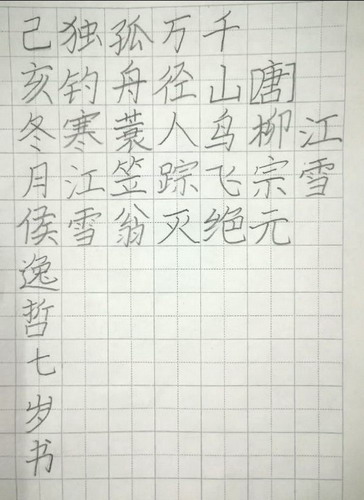 江雪
[唐]柳宗元
千山鸟飞绝
万径人踪灭
孤舟蓑笠翁
独钓寒江雪
己亥冬月侯逸哲七岁书